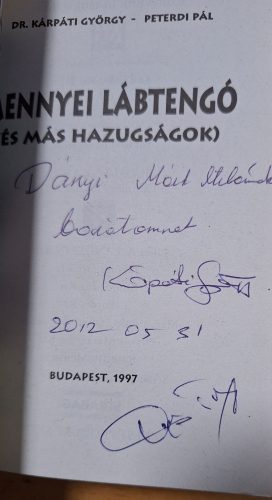 DR. KÁRPÁTI GYÖRGY - PETERDI PÁL
MENNYEI LÁBTENGÓ
(ÉS MÁS HAZUGSÁGOK)
Dányi
barátomnak
Kárpáti György
2012 05 31
BUDAPEST, 1997